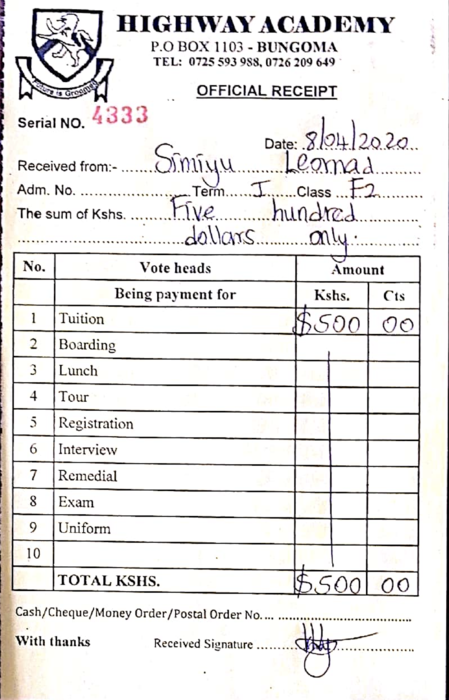 HIGHWAY ACADEMY
P.O BOX 1103 - BUNGOMA
TEL: 0725 593 988, 0726 209 649
OFFICIAL RECEIPT
Serial NO. 4333
Date: 8/04/2020
Received from:- Simiyu Leornad
Adm. No. Term I Class F2
The sum of Kshs. Five hundred
dollars only.
No. Vote heads Amount
Being payment for Kshs. Cts
1 Tuition $500 00
2 Boarding
3 Lunch
4 Tour
5 Registration
6 Interview
7 Remedial
8 Exam
9 Uniform
10
TOTAL KSHS. $500 00
Cash/Cheque/Money Order/Postal Order No.
With thanks Received Signature